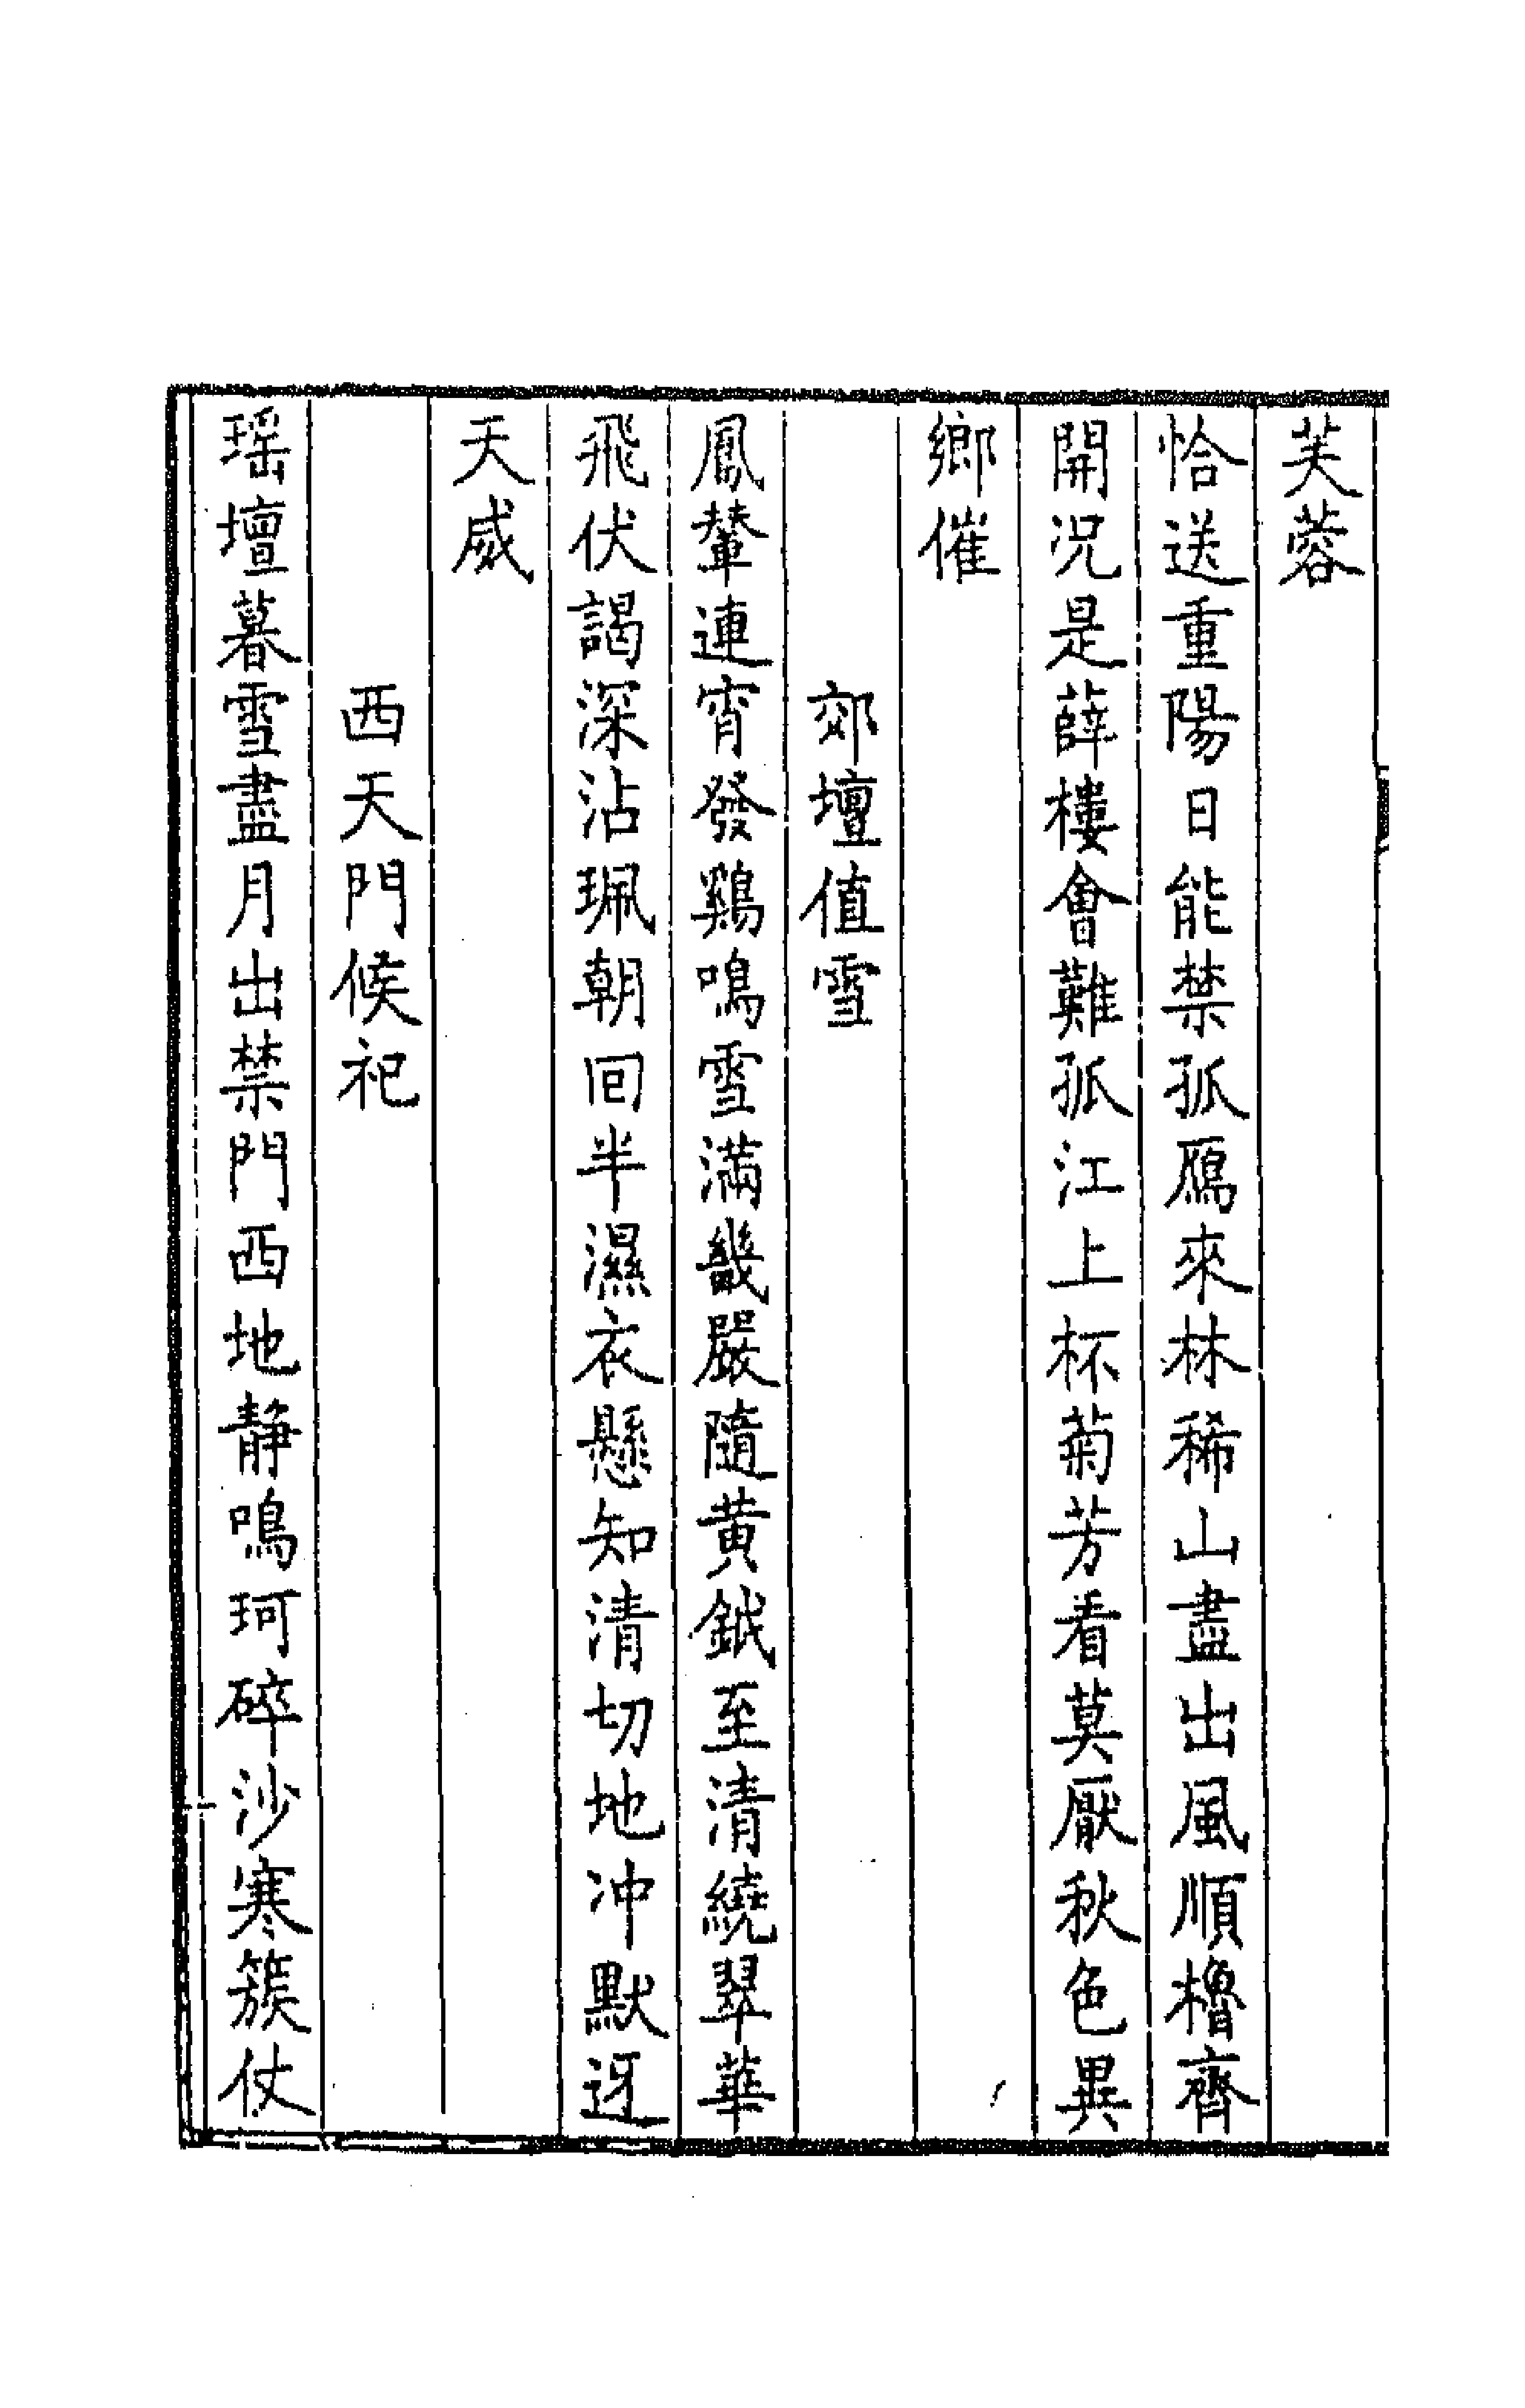 芙蓉
恰送重陽日能禁孤鴈來林稀山盡出風順櫓齊
開況是薛樓會難孤江上杯菊芳看莫厭秋色異
鄉催
郊壇值雪
鳳輦連宵發鷄鳴雪滿畿嚴隨黃鉞至清繞翠華
飛伏謁深沾珮朝回半濕衣懸知清切地冲默迓
天威
西天門候祀
瑶壇暮雪盡月出禁門西地静鳴珂碎沙寒簇仗